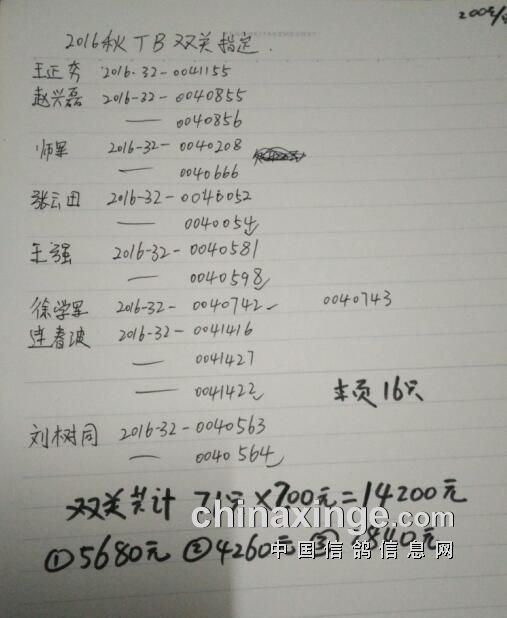 2016秋TB双关指定.
王正夯 2016-32-0041155
赵兴磊 2016-32-0040855
— 0040856
师军 2016-32-0040208
— 0040666
张云田 2016-32-0040052
— 0040054
王强 2016-32-0040581
— 0040598
徐学军 2016-32-0040742 0040743
连春波 2016-32-0041416
— 0041427
— 0041422
本页16只
刘树同 2016-32-0040563
— 0040564
双关共计 71只×200元=14200元
chinaxinge.com
①5680元 ②4260元 ③2840元
中国信鸽信息网